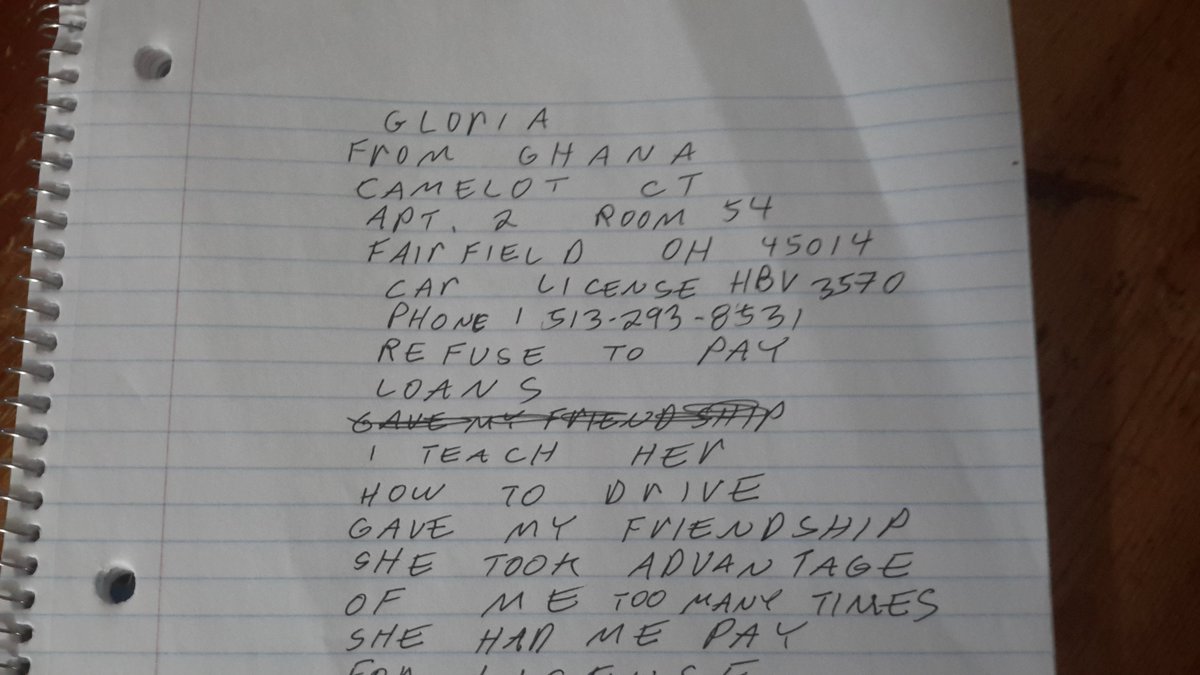 GLORIA
FROM GHANA
CAMELOT CT
APT. 2 ROOM 54
FAIRFIELD OH 45014
CAR LICENSE HBV 3570
PHONE 1 513-293-8531
REFUSE TO PAY
LOANS
GAVE MY FRIENDSHIP
I TEACH HER
HOW TO DRIVE
GAVE MY FRIENDSHIP
SHE TOOK ADVANTAGE
OF ME TOO MANY TIMES
SHE HAD ME PAY
FOR LICENSE